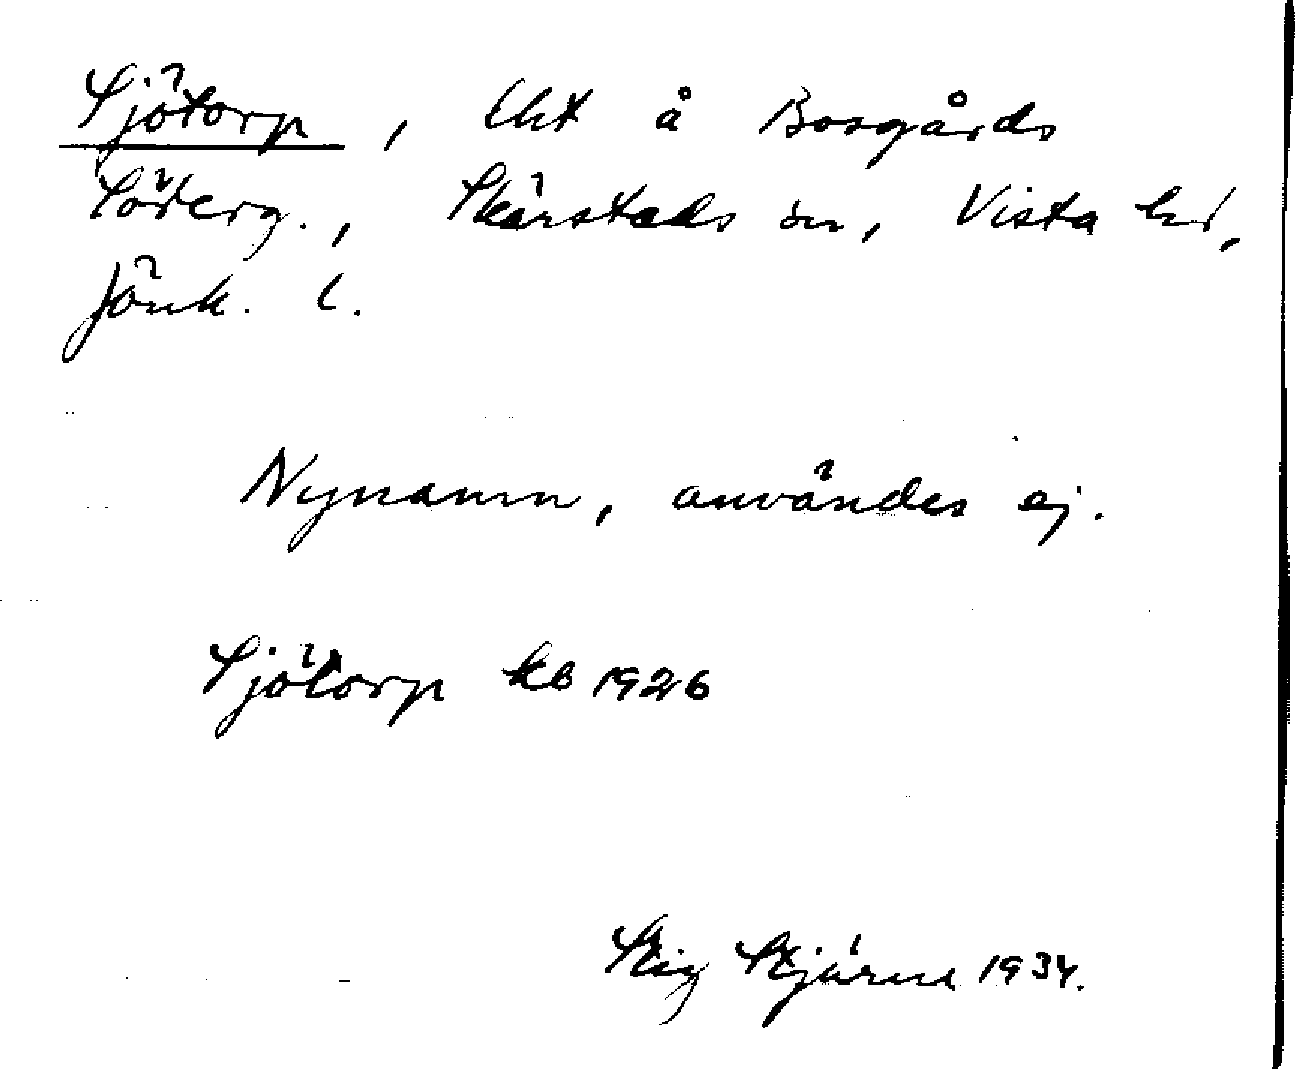 Sjötorp, lht å Bosgårds
Söderg., Skärstads sn, Vista hd,
Jönk. l.
Nynamn, användes ej.
Sjötorp kb 1926
Stig Stjärne 1934.